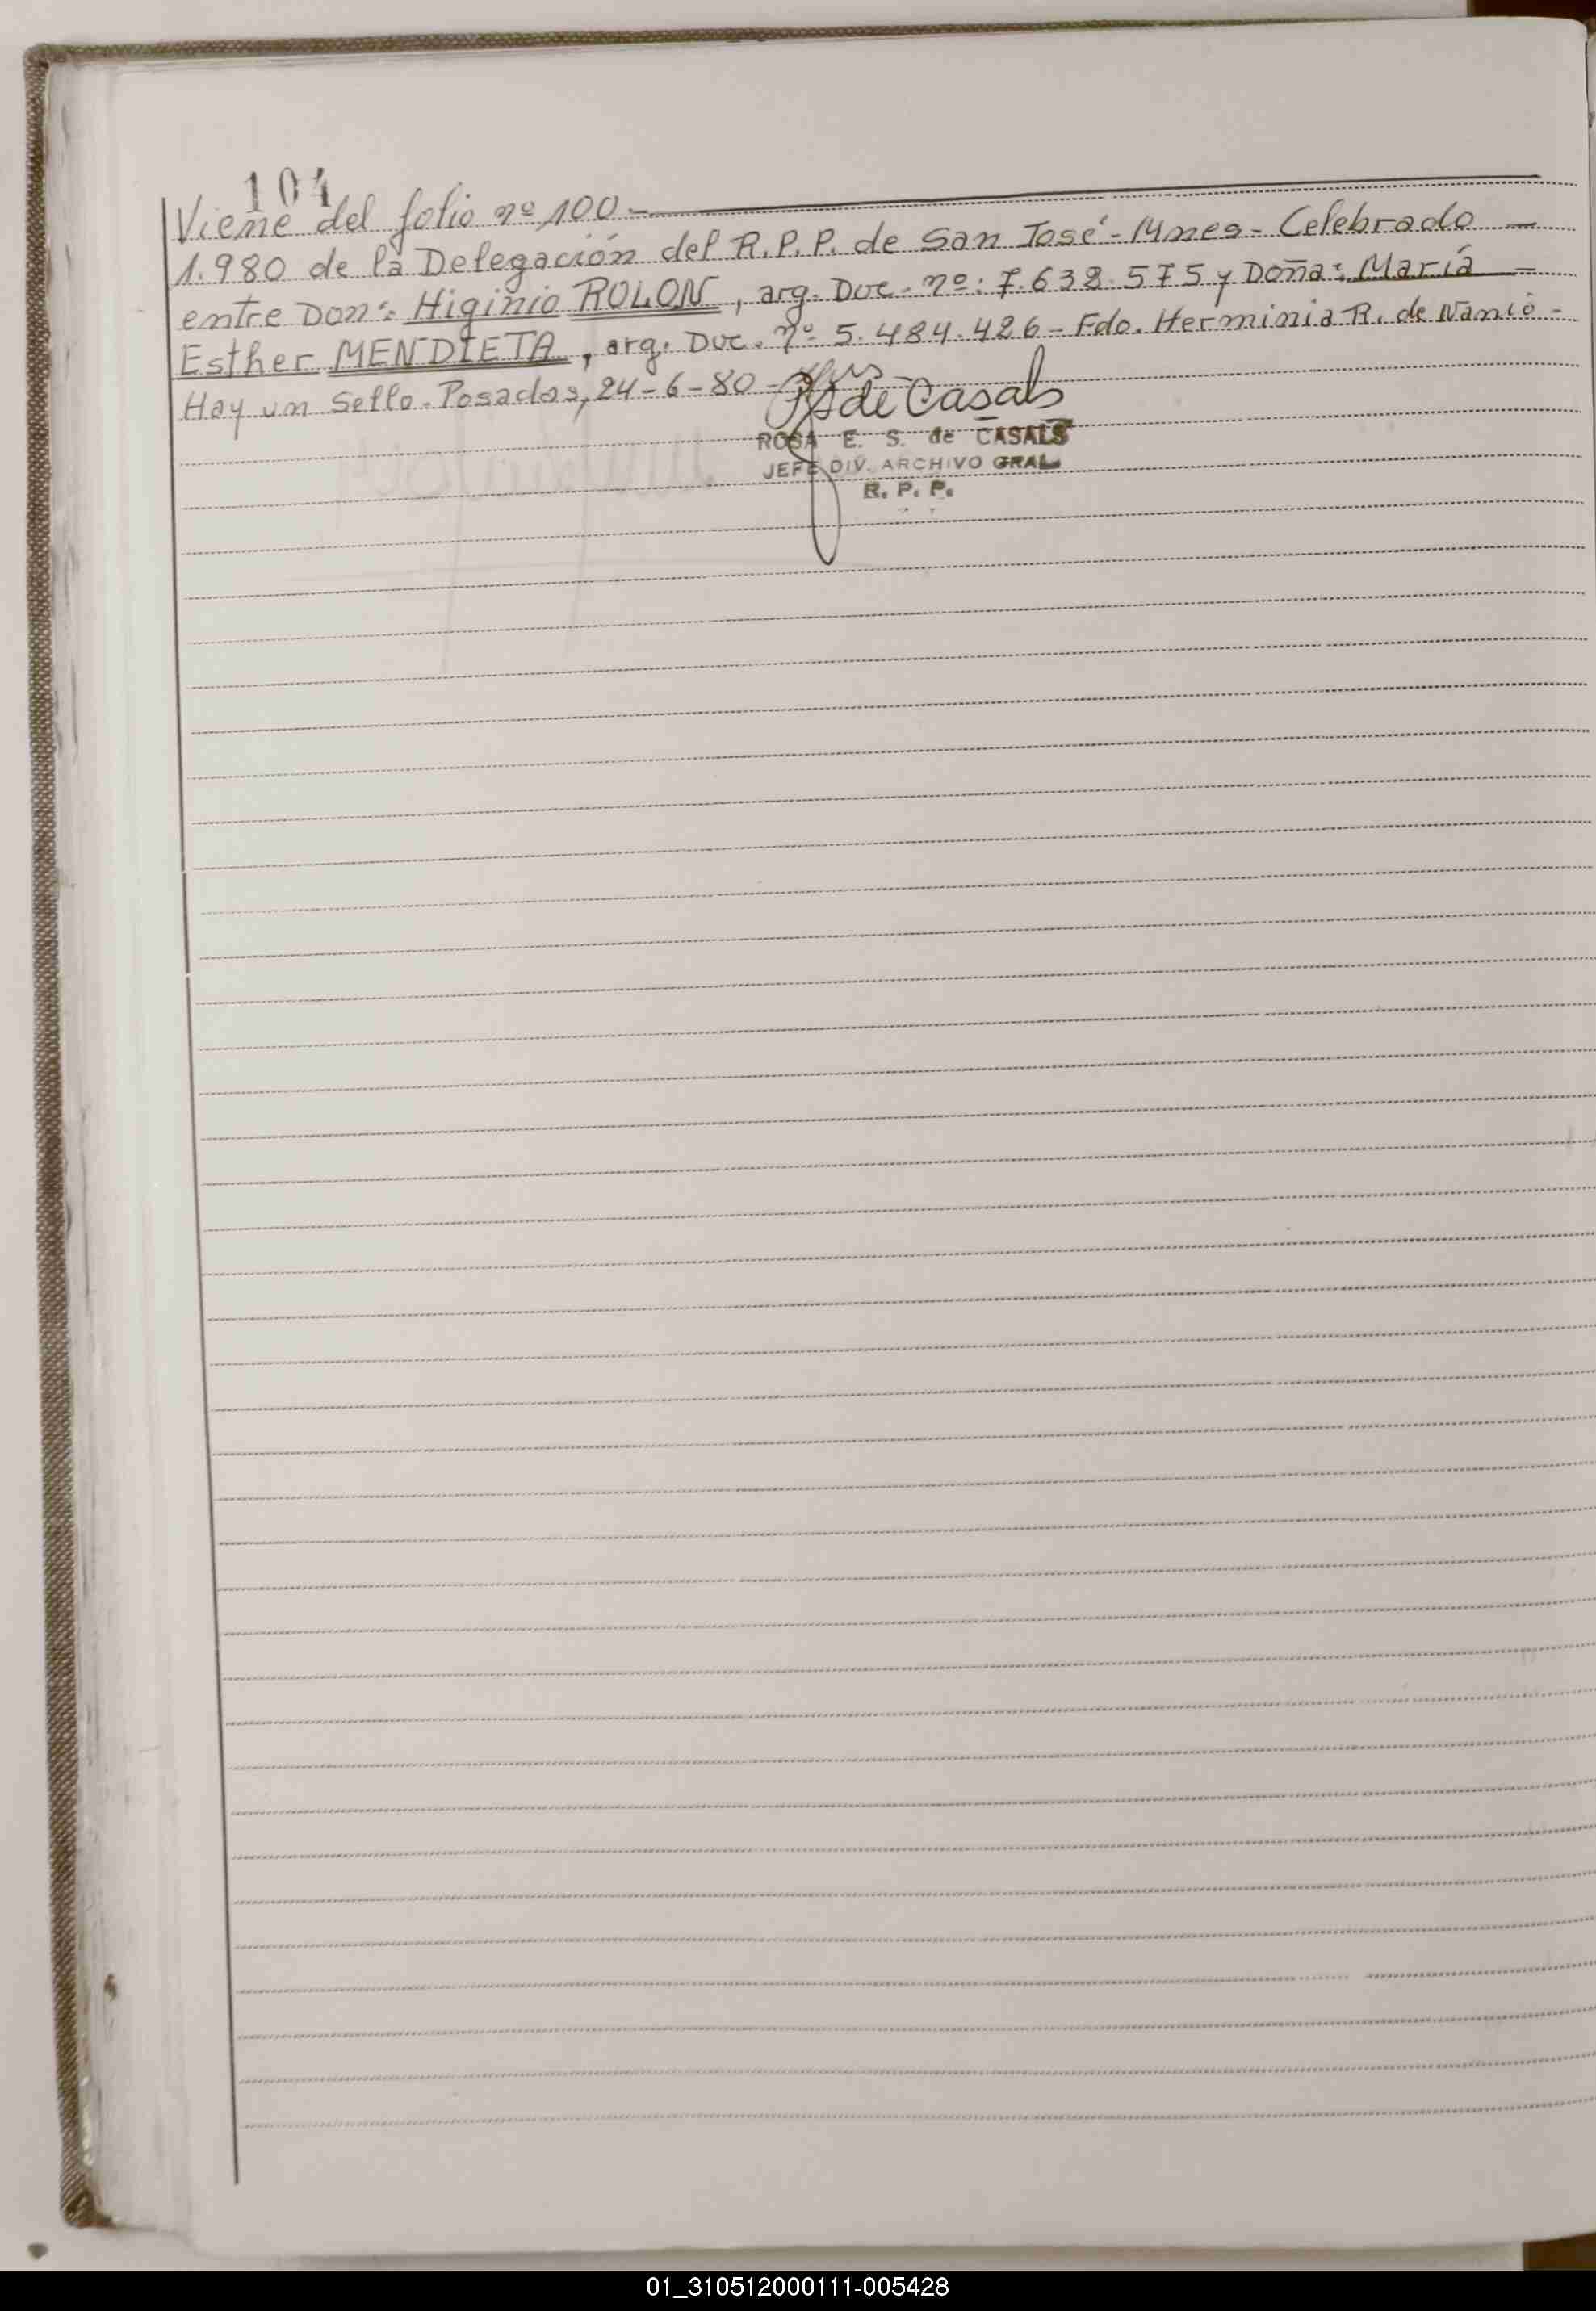 104
Viene del folio nº 100.-
1.980 de la Delegación del R.P.P. de San José - Mnes - Celebrado -
entre Don: Higinio ROLON, arg. Doc. nº: 7.638.575 y Doña: María -
Esther MENDIETA, arg. Doc. nº 5.484.426 - Fdo. Herminia R. de Nancio -
Hay un Sello. Posadas, 24-6-80 -
de Casals
ROSA E. S. de CASALS
JEFE DIV. ARCHIVO GRAL.
R. P. P.
01_310512000111-005428